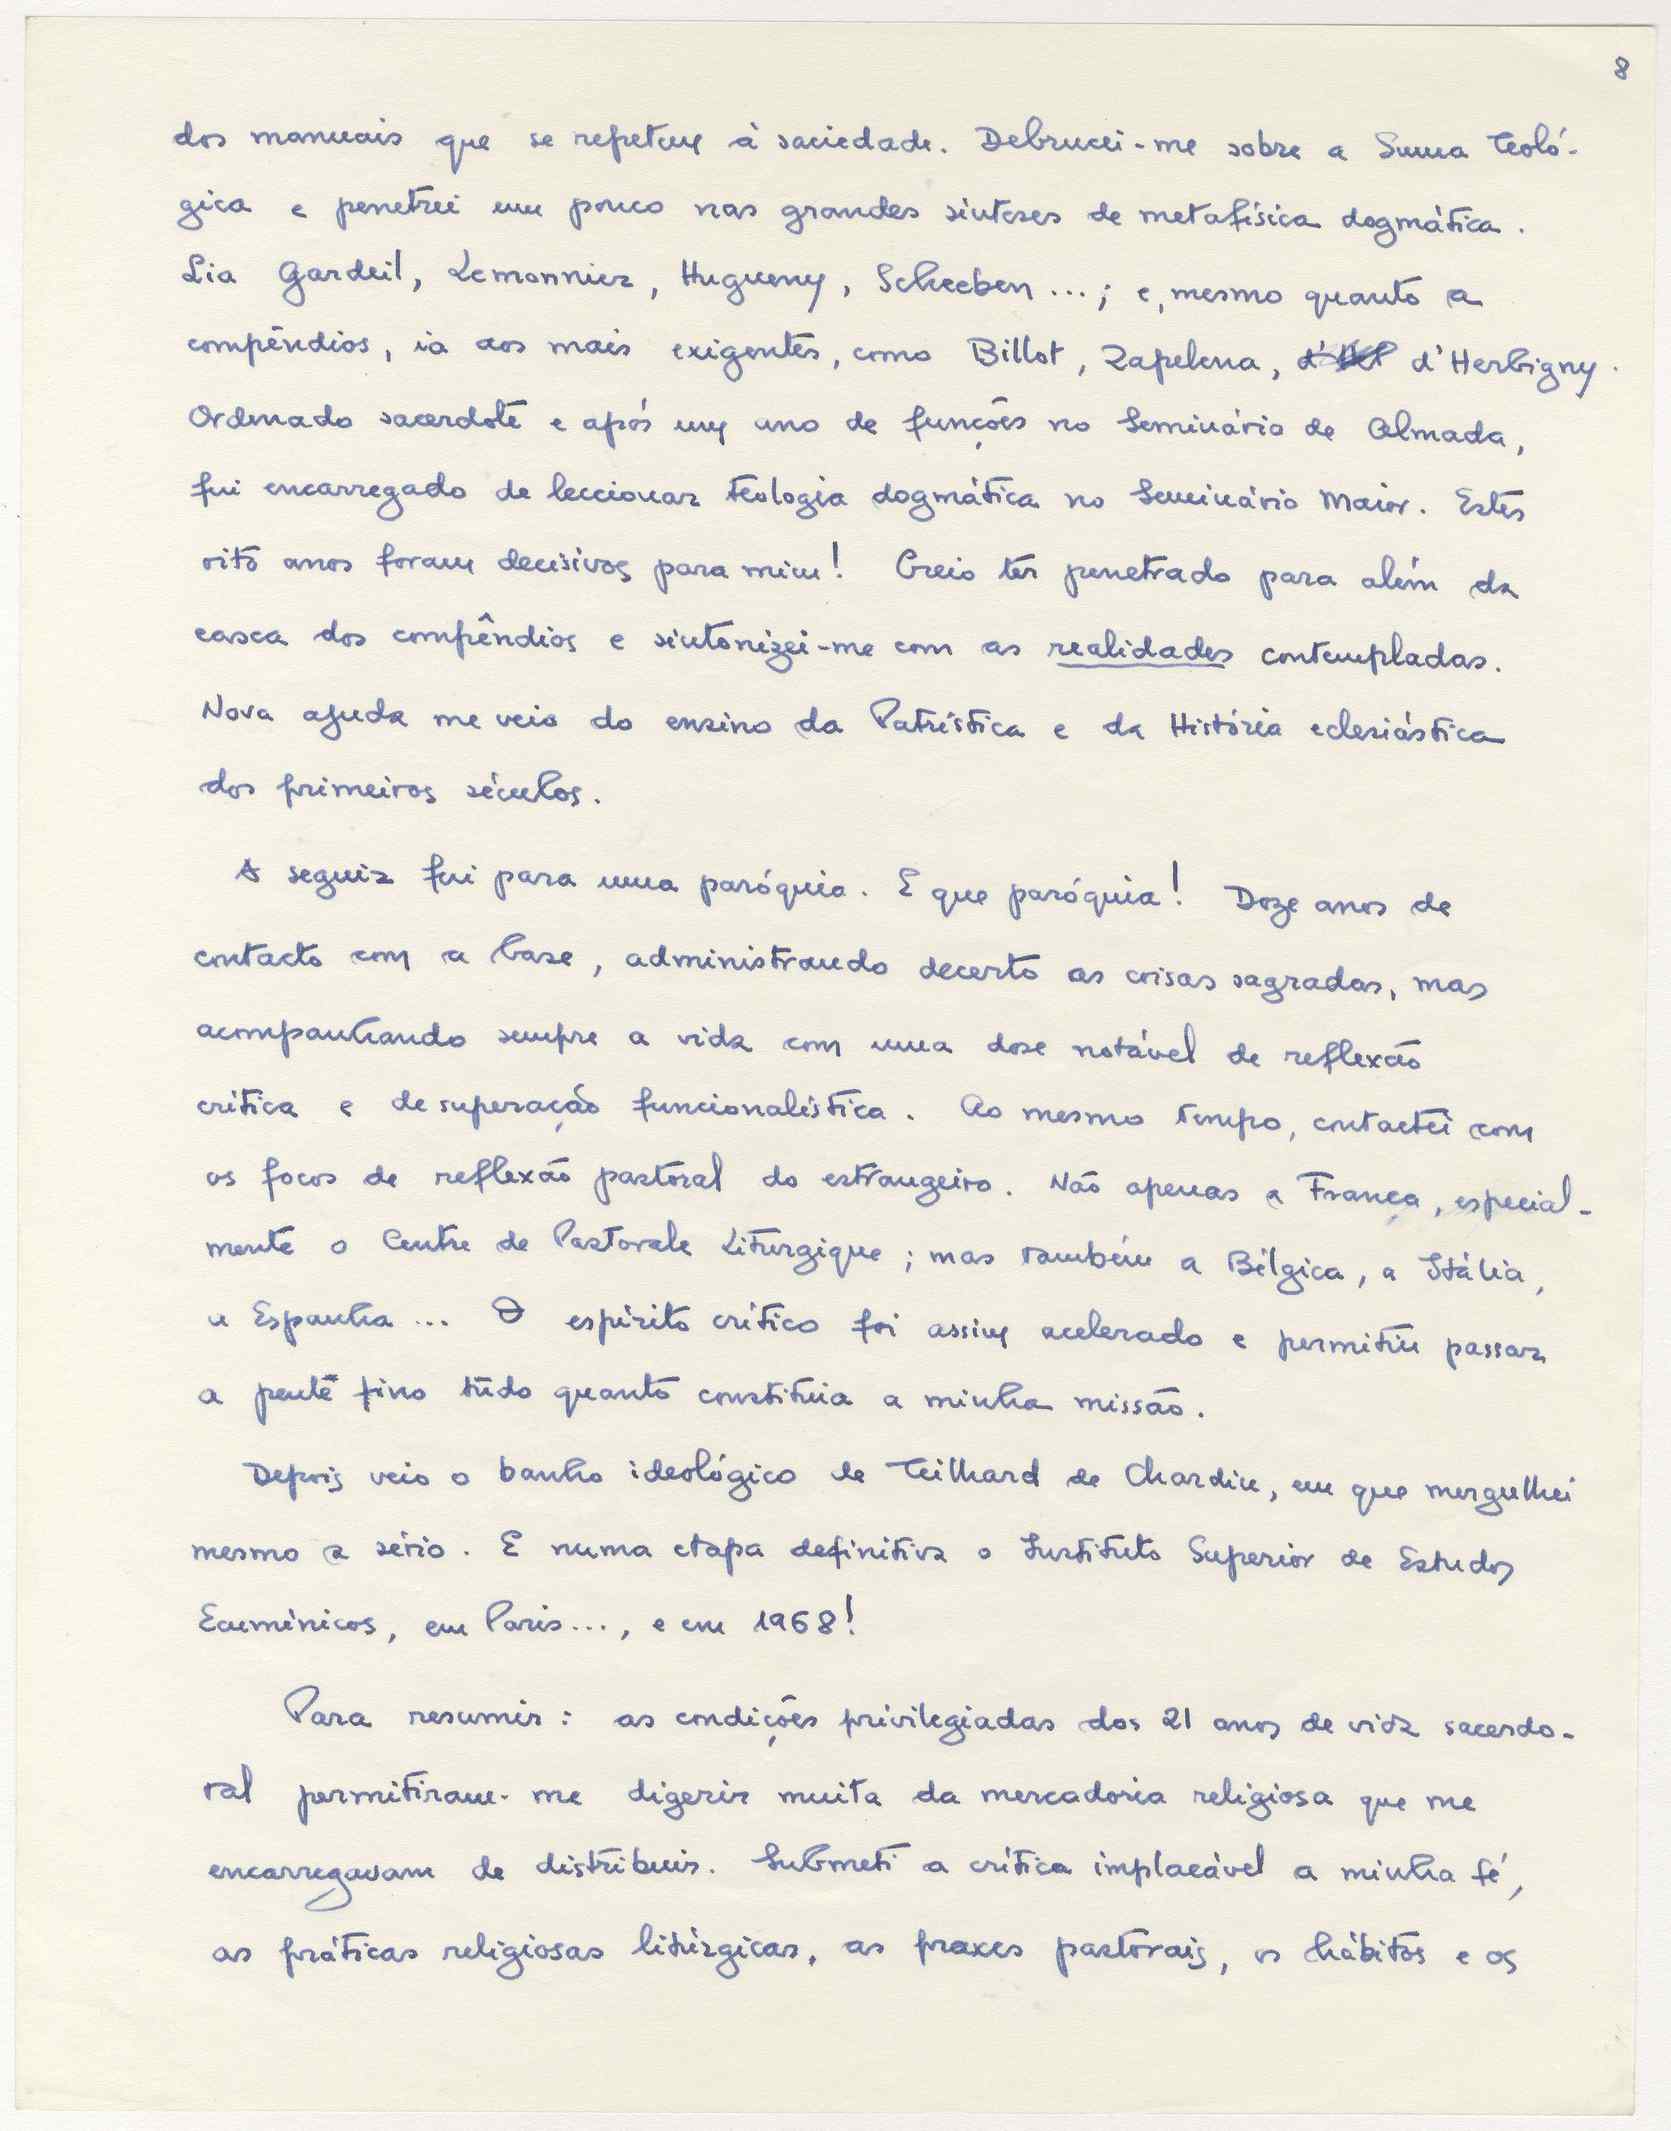 8
dos manuais que se repetem à saciedade. Debrucei-me sobre a Suma Teoló-
gica e penetrei um pouco nas grandes sínteses de metafísica dogmática.
Lia Gardeil, Lemonnier, Hugueny, Scheeben ...; e, mesmo quanto a
compêndios, ia aos mais exigentes, como Billot, Zapelena, d'Herbigny.
Ordenado sacerdote e após um ano de funções no Seminário de Almada,
fui encarregado de leccionar teologia dogmática no Seminário Maior. Estes
oito anos foram decisivos para mim! Creio ter penetrado para além da
casca dos compêndios e sintonizei-me com as realidades contempladas.
Nova ajuda me veio do ensino da Patrística e da História eclesiástica
dos primeiros séculos.
A seguir fui para uma paróquia. E que paróquia! Doze anos de
contacto com a base, administrando decerto as coisas sagradas, mas
acompanhando sempre a vida com uma dose notável de reflexão
crítica e de superação funcionalística. Ao mesmo tempo, contactei com
os focos de reflexão pastoral do estrangeiro. Não apenas a França, especial-
mente o Centre de Pastorale Liturgique; mas também a Bélgica, a Itália,
a Espanha ... O espírito crítico foi assim acelerado e permitiu passar
a pente fino tudo quanto constituia a minha missão.
Depois veio o banho ideológico de Teilhard de Chardin, em que mergulhei
mesmo a sério. E numa etapa definitiva o Instituto Superior de Estudos
Ecuménicos, em Paris ..., e em 1968!
Para resumir: as condições privilegiadas dos 21 anos de vida sacerdo-
tal permitiram-me digerir muita da mercadoria religiosa que me
encarregavam de distribuir. Submeti a crítica implacável a minha fé,
as práticas religiosas litúrgicas, as praxes pastorais, os hábitos e os